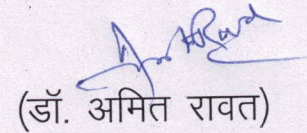 (डॉ. अमित रावत)